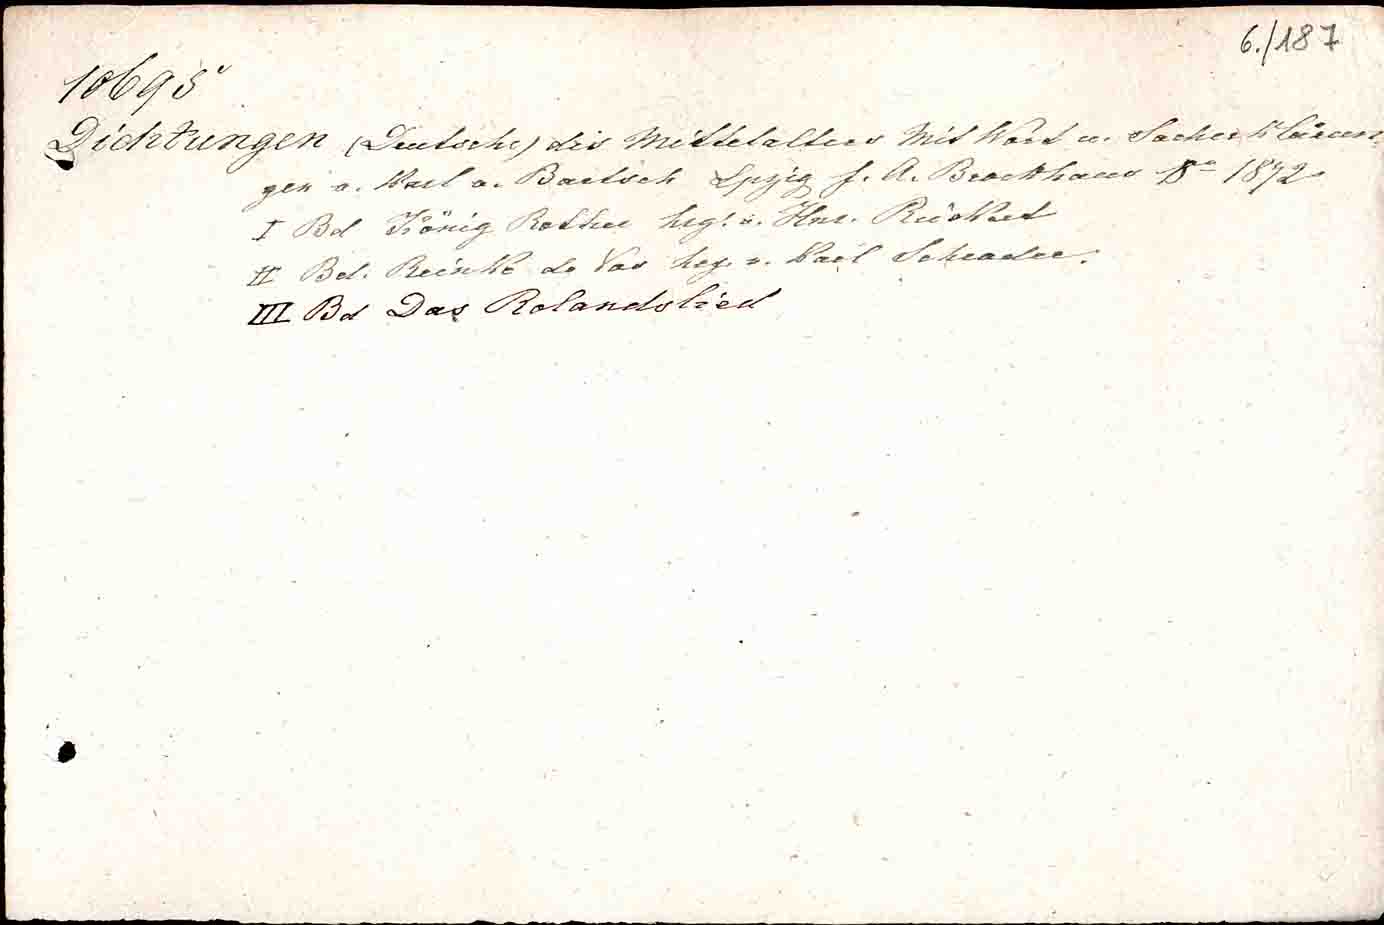 6./187
10695
Dichtungen (Deutsche) des Mittelalters Mit Wort u. Sacherklärun-
gen v. Karl v. Bartsch Lpzig f. A. Brockhaus 8° 1872
I Bd König Rother hsg. v. Hnr. Rückert
II Bd. Reinke de Vos hsg. v. Karl Schrader.
III Bd Das Rolandslied